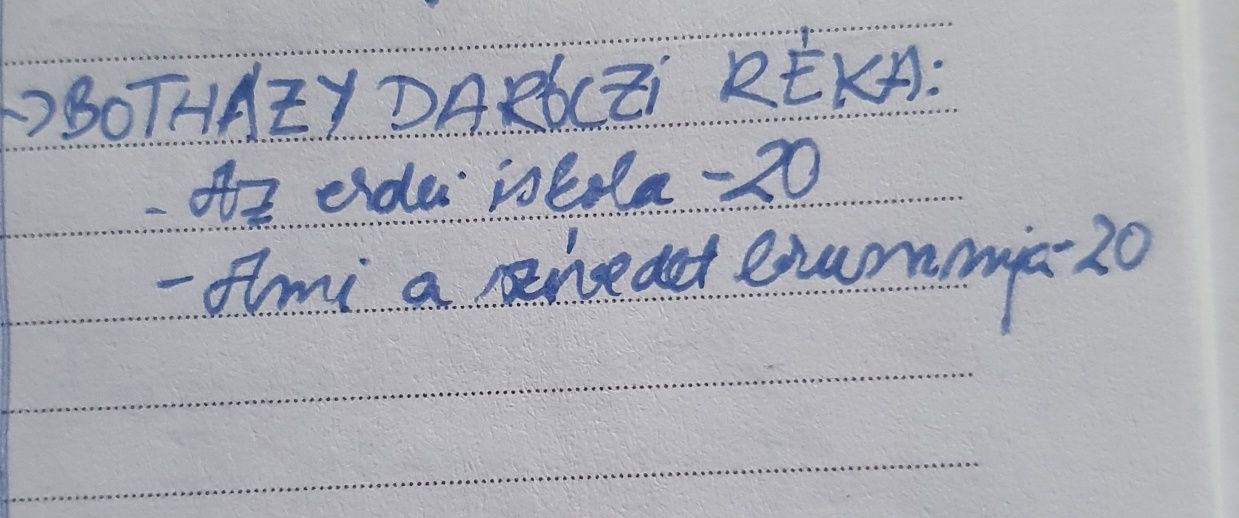 →BOTHÁZY DARÓCZI RÉKA:
- Az erdei iskola -20
- Ami a szívedet brummja -20